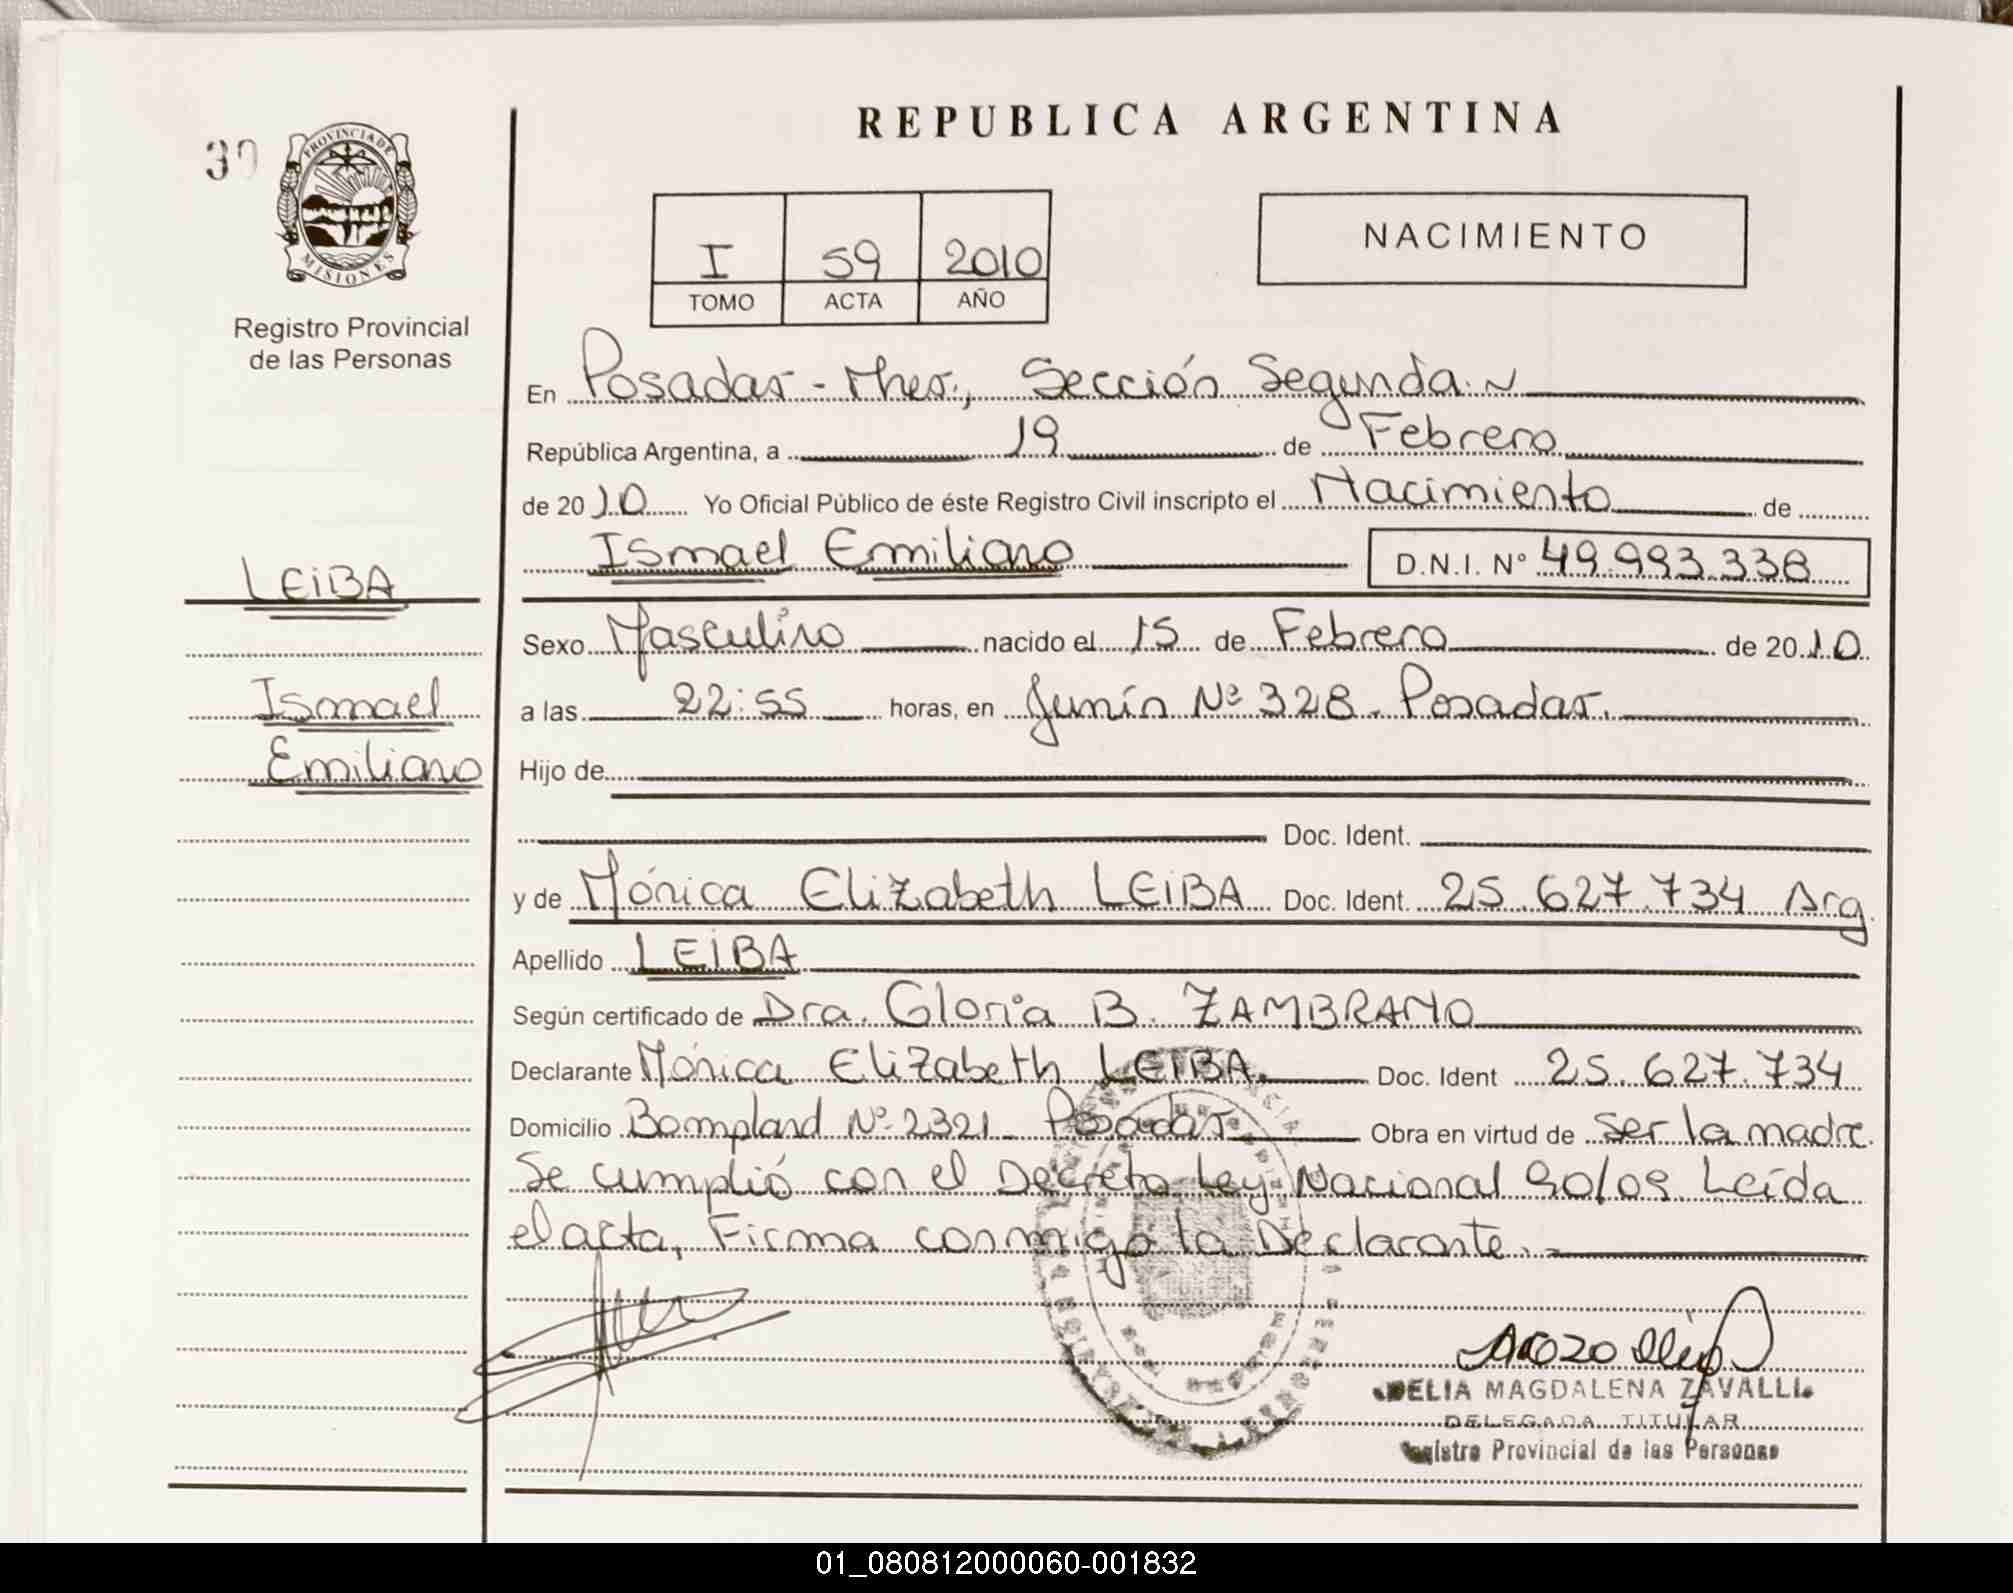 REPUBLICA ARGENTINA
30
PROVINCIA DE
MISIONES
Registro Provincial
de las Personas
I 59 2010
TOMO ACTA AÑO
NACIMIENTO
En Posadas - Mnes., Sección Segunda.
República Argentina, a 19 de Febrero
de 2010 Yo Oficial Público de éste Registro Civil inscripto el Nacimiento de
Ismael Emiliano D.N.I. Nº 49.993.338
LEIBA
Ismael
Emiliano
Sexo Masculino nacido el 15 de Febrero de 2010
a las 22:55 horas, en Junín Nº 328. Posadas.
Hijo de
Doc. Ident.
y de Mónica Elizabeth LEIBA Doc. Ident. 25.627.734 Arg.
Apellido LEIBA
Según certificado de Dra. Gloria B. ZAMBRANO
Declarante Mónica Elizabeth LEIBA. Doc. Ident 25.627.734
Domicilio Bompland Nº 2321 - Posadas Obra en virtud de ser la madre.
Se cumplió con el Decreto Ley Nacional 90/09 Leída
el acta, Firma conmigo la Declarante. -
DELIA MAGDALENA ZAVALLI
DELEGADA TITULAR
Registro Provincial de las Personas
01_080812000060-001832